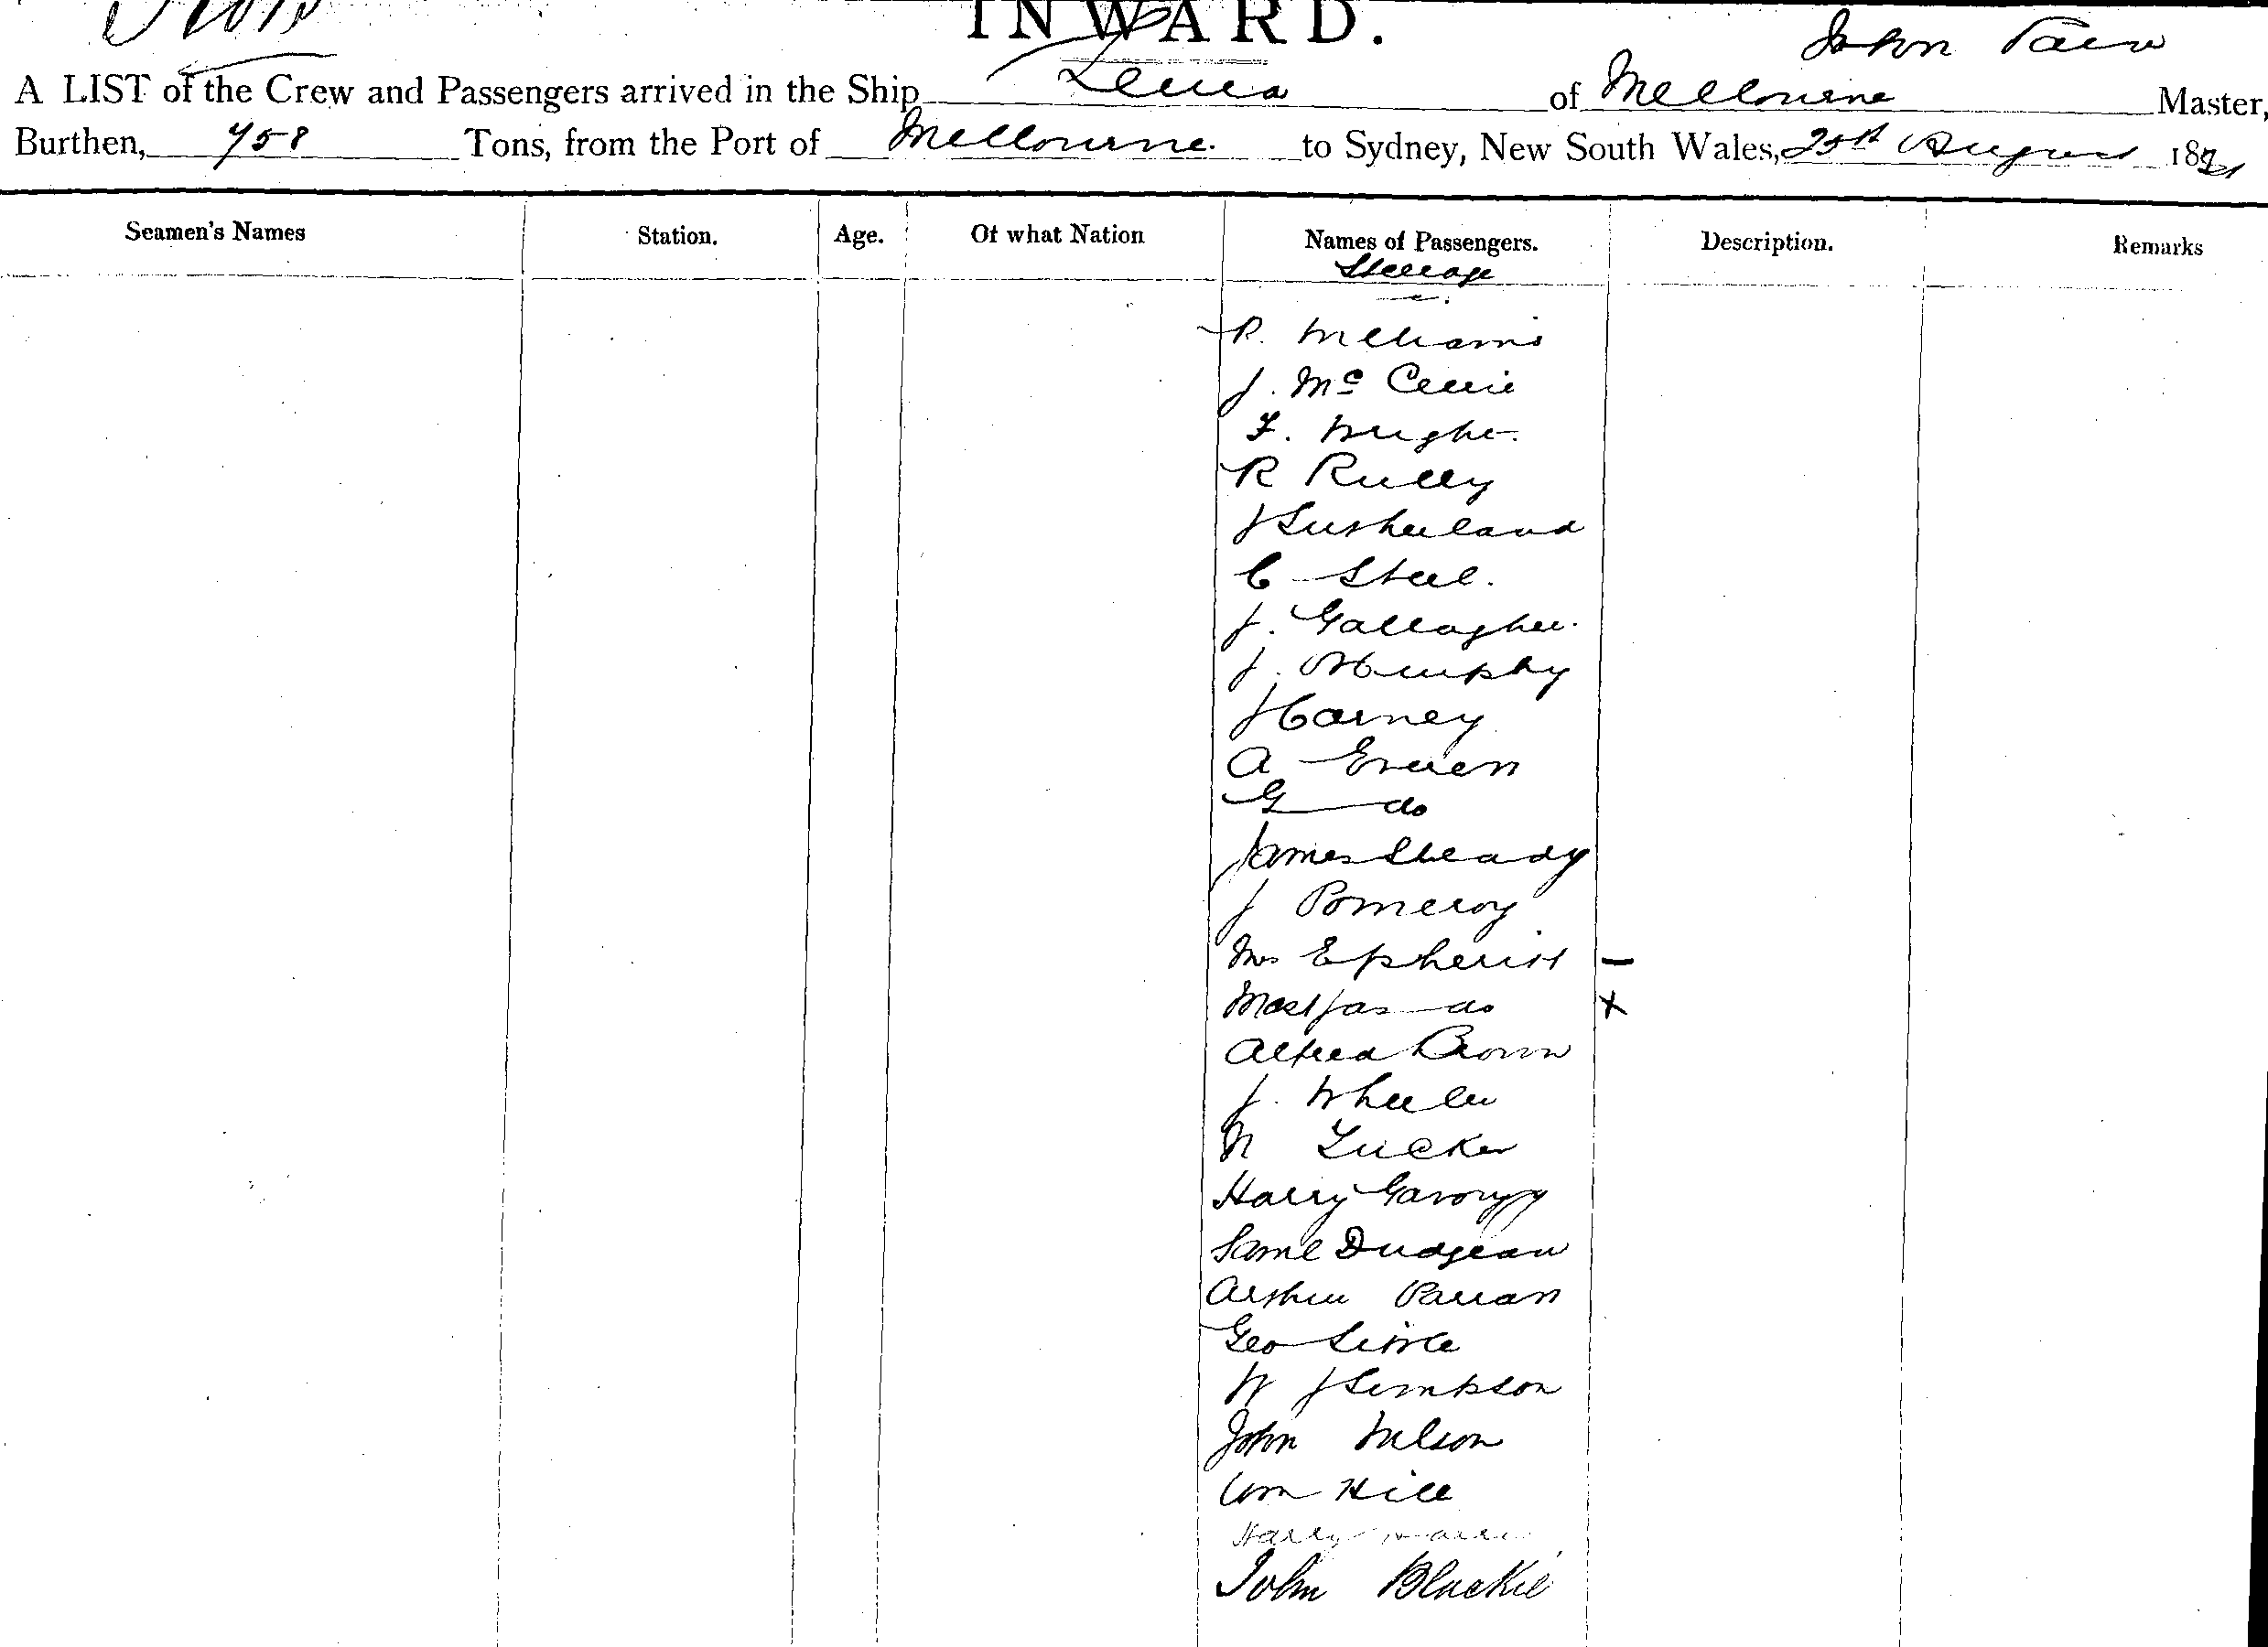 INWARD.
John Pain
A LIST of the Crew and Passengers arrived in the Ship of Melbourne Master,
Burthen, 758 Tons, from the Port of Melbourne. to Sydney, New South Wales, 25th August 1871
Seamen's Names Station. Age. Of what Nation Names of Passengers. Description. Remarks
Steerage
R. Williams
J. Mc
F. Wright.
R Rully
J Sutherland
C Steel.
J. Gallagher.
J. Murphy
J Carney
A Erwen
G do
James Sheady
J Pomeroy
Mrs Epherist —
Mast Jas do x
Alfred Brown
J. Wheeler
N Tucker
Harry
Saml Dudgeon
Arthur Parran
Geo Little
W J Simpson
John Wilson
Wm Hill
Harry
John Blackie